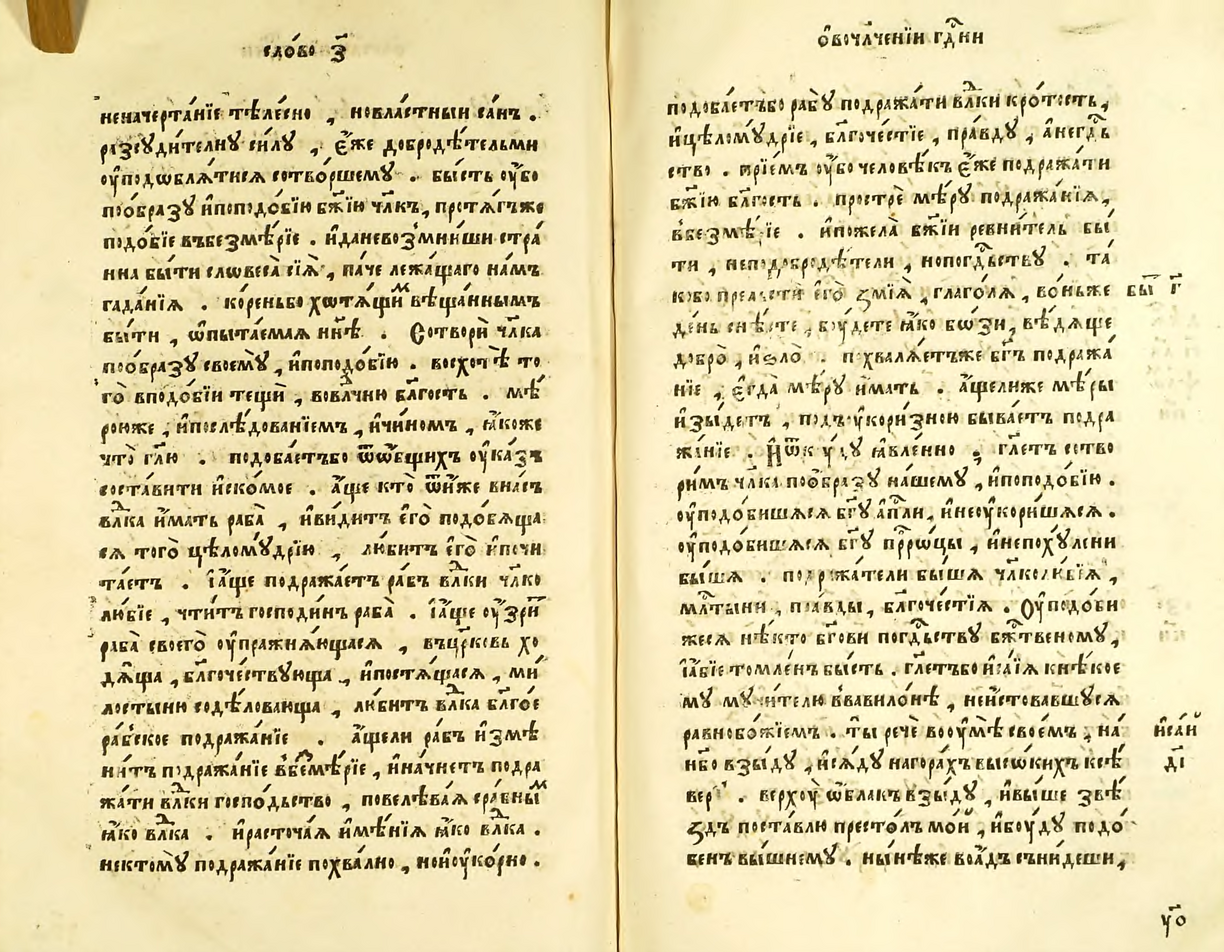 сло́во з҃
неначерта́нїе тѣле́сно , новла́стныи са́нъ .
разсуди́телну си́лу , є҆́же добродѣ́тельми
оу҆подѡблѧ́тисѧ сотво́ршему . бы́сть оу҆́бо
поо́бразу и҆поподо́бїю бж҃їю чл҃къ , протѧ́гъже
подо́бїе въбезмѣ́рїе . и҆даневозмни́ши стра
нна бы́ти словеса̀ сїѧ̀ , па́че лежа́щаго на́мъ
гада́нїѧ . ко́реньбо хотѧ́щимъ вѣща́ннымъ
бы́ти , ѡ҆пыта́емаѧ нн҃ѣ . Сотвори̑ чл҃ка
поо́бразу своемꙋ̀ , и҆поподо́бїю . восхотѣ̀ то
го̀ вподо́бїи тещѝ , вовлⷣчню бл҃гость . мѣ́
роюже , и҆послѣ́дованїемъ , и҆чи́номъ , ꙗ҆́коже
что̀ гл҃ю . подоба́етъбо ѿѻ҆́бщихъ оу҆ка́зъ
соста́вити и҆ско́мое . а҆́ще кто̀ ѿни́же вна́съ
влⷣка и҆́мать раба̀ , и҆ви́дитъ є҆го̀ подо́бѧща
сѧ того̀ цѣломꙋ́дрїю , лю́битъ є҆го̀ и҆почи
та́етъ . і҆а҆́ще подража́етъ ра́бъ влⷣки чл҃ко
лю́бїе , чти́тъ господи́нъ раба̀ . і҆а҆́ще оу҆зри́
раба̀ своего̀ оу҆пражнѧ́ющасѧ , въцр҃ковь хо
дѧ́ща , бл҃гоче́ствующа , и҆постѧ́щасѧ , ми́
лостыню содѣ́ловающа , лю́битъ влⷣка бл҃гое
ра́бское подража́нїе . а҆́щели ра́бъ и҆змѣ
ни́тъ подража́нїе вбезмѣ́рїе , и҆начне́тъ подра
жа́ти влⷣки госпо́дьство , повелѣва́ѧ сра́бны
ꙗ҆́ко влⷣка . и҆расточа́ѧ и҆мѣ́нїѧ ꙗ҆́ко влⷣка .
нектомꙋ̀ подража́нїе похва́лно , нои҆оу҆ко́рно .
ѻ҆вочл҃ченїи гдⷭ҇ни
подобле́тъбо рабꙋ̀ подража́ти влⷣки кро́тость ,
и҆цѣломꙋ́дрїе , бл҃гоче́стїе , пра́вдꙋ , а҆негдⷭ҇ь
ство . прїе́мъ оу҆́бо человѣ́къ є҆́же подража́ти
бж҃їю бл҃гость . прострѐ мѣ́рꙋ подража́нїѧ ,
вбезмѣ́рїе . и҆пожела̀ бж҃їи ревни́тель бы́
ти , неподобродѣ́тели , нопогдⷭ҇ьству . та
ково прельсти є҆го̀ ѕмі́ѧ , глаго́лѧ , во́ньже
де́нь снѣ́сте , бꙋ́дете ꙗ҆́ко бо́ѕи , вѣ́дѧще
добро̀ , и҆ѕло̀ . похвалѧ́етъже бг҃ъ подража́
нїе , є҆гда̀ мѣ́рꙋ и҆́мать . а҆́щелиже мѣ́ры
и҆зы́детъ , подъꙋкори́зною быва́етъ подра
жа́нїе . И҆ѿкꙋдꙋ ꙗ҆вле́нно , гл҃етъ сотво
ри́мъ чл҃ка поо́бразꙋ на́шемꙋ , и҆поподо́бїю .
оу҆подо́бишасѧ бг҃ꙋ а҆пⷭ҇ли , и҆неоу҆кори́шасѧ .
оу҆подо́бишасѧ бг҃ꙋ прⷪ҇рѻцы , и҆непохꙋ́лени
бы́шѧ . подража́тели бы́шѧ чл҃колю́бїѧ ,
млⷭ҇тыни , пра́вды , бл҃гоче́стїѧ . Оу҆подо́би
жесѧ нѣ́кто бг҃ови погдⷭ҇ьству бж҃твеному ,
і҆а҆́бїе томле́нъ бы́сть . гл҃етъбо и҆са́їѧ кнѣ́кое
му мꙋчи́телю ввавило́нѣ , неи́стовавшусѧ
равнобо́жїемъ . ты̀ речѐ вооу҆мѣ̀ свое́мъ , на́
нб҃о взы́дꙋ , и҆сѧ́дꙋ нагора́хъ высо́кихъ ксѣ́
вер . верхоу̀ ѻ҆́блакъ взы́дꙋ , и҆вы́ше звѣ́
ѕдъ поста́влю престо́лъ мо́й , и҆боу́дꙋ подо́
бенъ вы́шнемꙋ . ны́нѣже воа҆́дъ сни́деши ,
бы̑ г҃
и҆са́и
ді҃
ч҃о